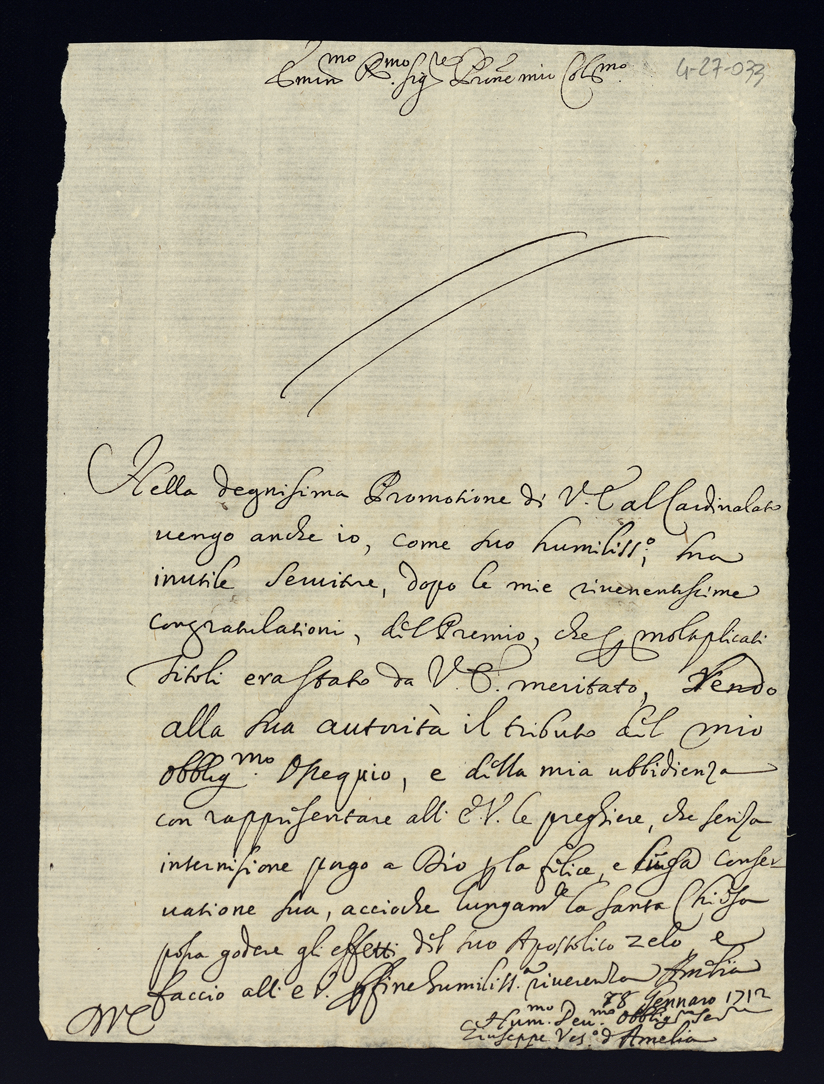 Emin.mo R.mo Sig.re P.rone mio Col.mo
4-27-033
Nella degnissima Promotione di V. E. al Cardinalato
uengo anche io, come suo humiliss.o, ma
inutile Seruitore, dopo le mie riuerentissime
congratulationi, del Premio, che p moltiplicati
titoli era stato da V. E. meritato, Rendo
alla sua autorità il tributo del mio
obblig.mo Ossequio, e della mia ubbidienza
con rappresentare all' E. V. le preghiere, che senza
intermissione porgo a Dio p la felice, e lunga conser
uatione sua, accioche lungam.te la Santa Chiesa
possa godere gli effetti del suo Apostolico zelo, e
faccio all' E. V. p fine humiliss.a riuerenza Amelia
28 Gennaro 1712
Hum.mo Deu.mo Obblig.mo Ser.re
Giuseppe Ves.o d'Amelia